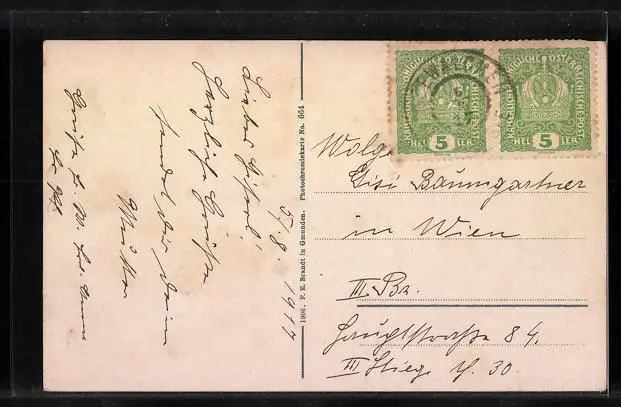 5./8. 1917
Liebes Giserl!
Herzliche Grüße
sendet Dir Dein
Mutter
Grüße
1906. F. E. Brandt in Gmunden. Photochromiekarte No. 664
KAISERLICHE KÖNIGLICHE ÖSTERREICHISCHE POST
5
HELLER
KAISERLICHE KÖNIGLICHE ÖSTERREICHISCHE POST
5
HELLER
GMUNDEN
Gisi Baumgartner
in Wien
III. Bz.
Hauptstraße 84.
III Stiege T. 30.